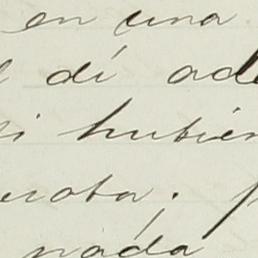 en una
di ad
si hubier
rota; p
nada